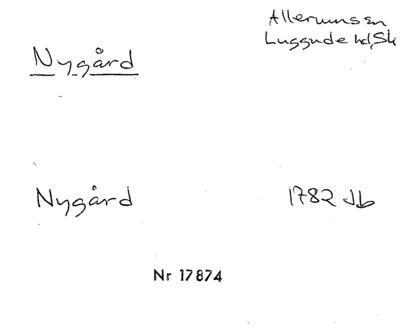 Allerums sn
Luggude hd, Sk
Nygård
Nygård 1782 Jb
Nr 17874